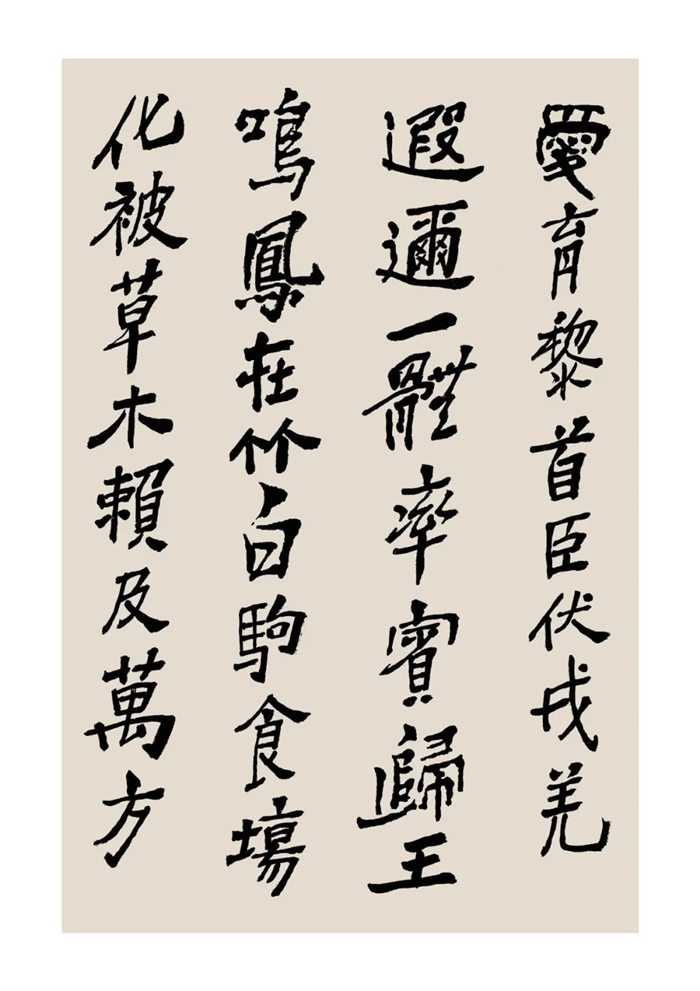 愛育黎首臣伏戎羌
遐邇一體率賓歸王
鳴鳳在竹白駒食場
化被草木賴及萬方